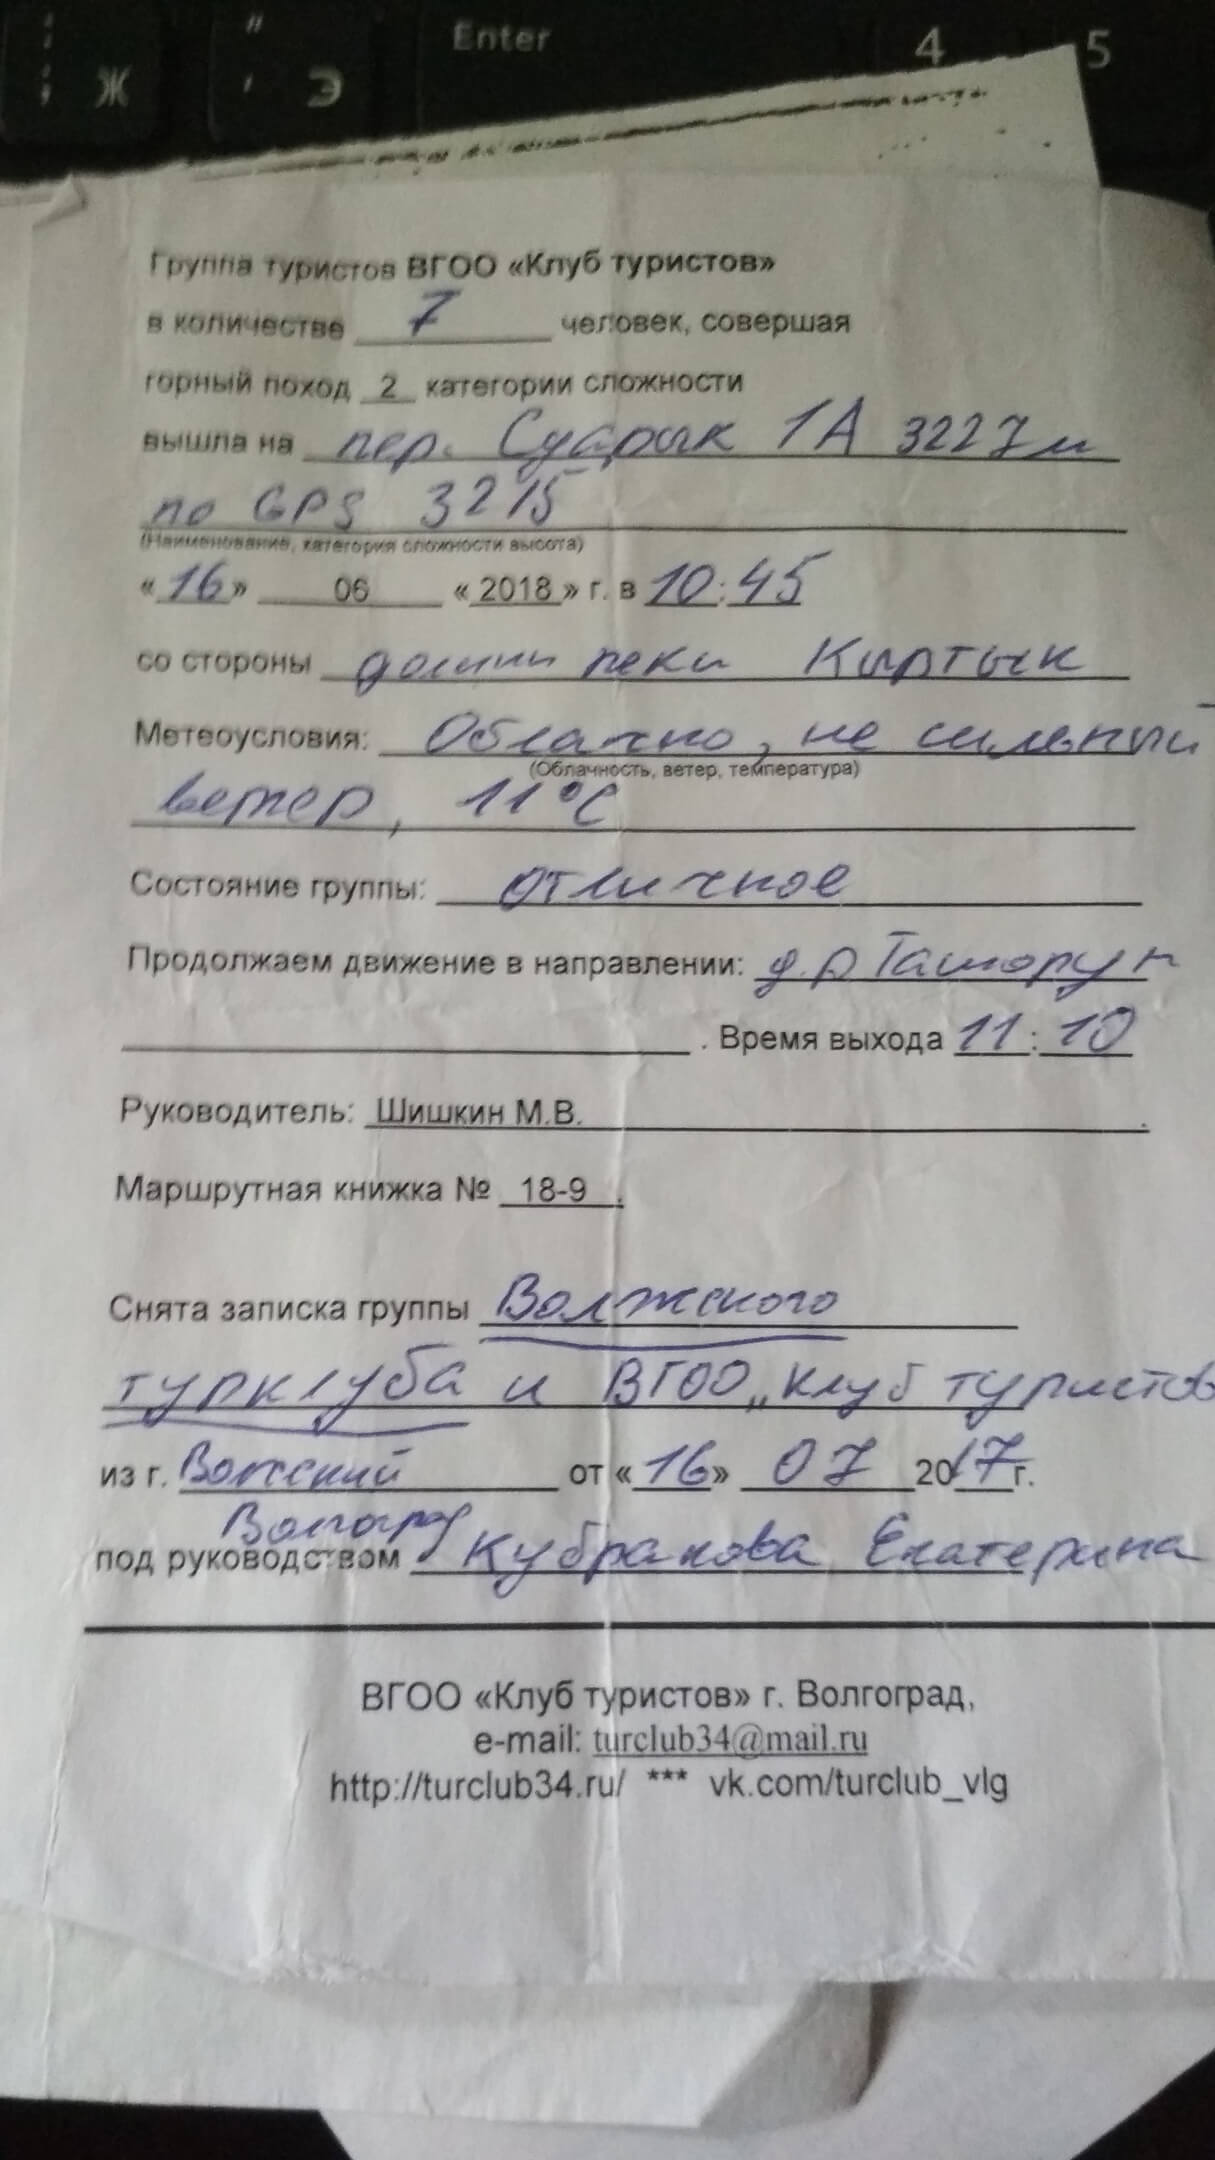 Enter
4
5
;
Ж
"
'
Э
Группа туристов ВГОО «Клуб туристов»
в количестве 7 человек, совершая
горный поход 2 категории сложности
вышла на пер. Суарык 1А 3227м
по GPS 3215
(Наименование, категория сложности высота)
«16» 06 «2018» г. в 10:45
со стороны долины реки Кыртык
Метеоусловия: Облачно, не сильный
(Облачность, ветер, температура)
ветер, 11°С
Состояние группы: отличное
Продолжаем движение в направлении: д.р
. Время выхода 11:10
Руководитель: Шишкин М.В.
Маршрутная книжка № 18-9.
Снята записка группы Волжского
турклуба и ВГОО „Клуб туристов
из г. Волжский от «16» 07 2017г.
Волгоград
под руководством Кубракова Екатерина
ВГОО «Клуб туристов» г. Волгоград,
e-mail: turclub34@mail.ru
http://turclub34.ru/ *** vk.com/turclub_vlg